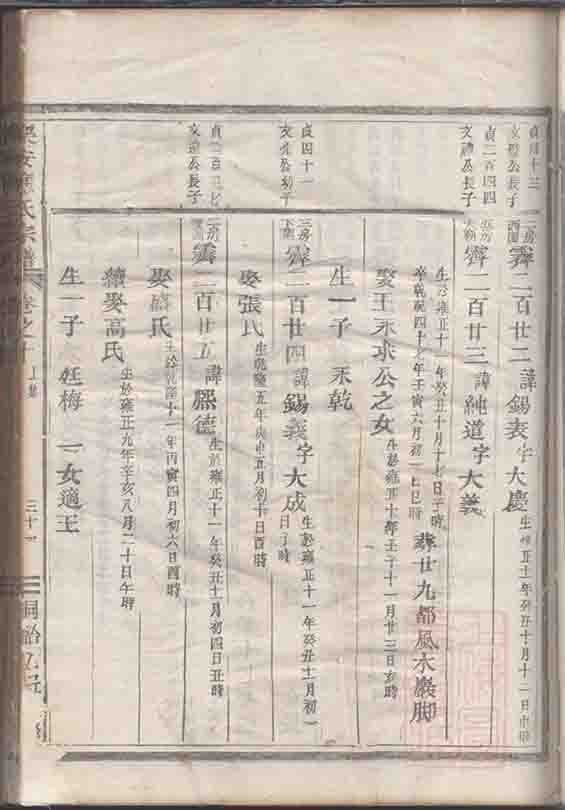 貞四十三
文禮公長子
二房
霽二百廿二 諱錫表 字大慶 生 雍正十一年癸丑十月十二日 時
貞二百四四
文禮公長子
霽二百廿三 諱純道 字大義
生於雍正十一年癸丑十月十七日子時
卒乾隆四十七年壬寅六月初七巳時 葬廿九都風木巖脚
娶王永求公之女 生於雍正十年壬子十一月廿三日亥時
生一子 永乾
貞四十一
文 公幼子
三房
霽二百廿四 諱錫義 字大成 生於雍正十一年癸丑十一月初一日子時
娶張氏 生乾隆五年庚申五月初十日酉時
文 公長子
二房
霽二百廿五 諱熙德 生於雍正十一年癸丑十一月初四日丑時
娶 氏 生於乾隆十一年丙寅四月初六日酉時
續娶高氏 生於雍正九年辛亥八月二十日午時
生一子 廷梅 一女適王
氏宗譜 卷之十 上集
三十
同治九年